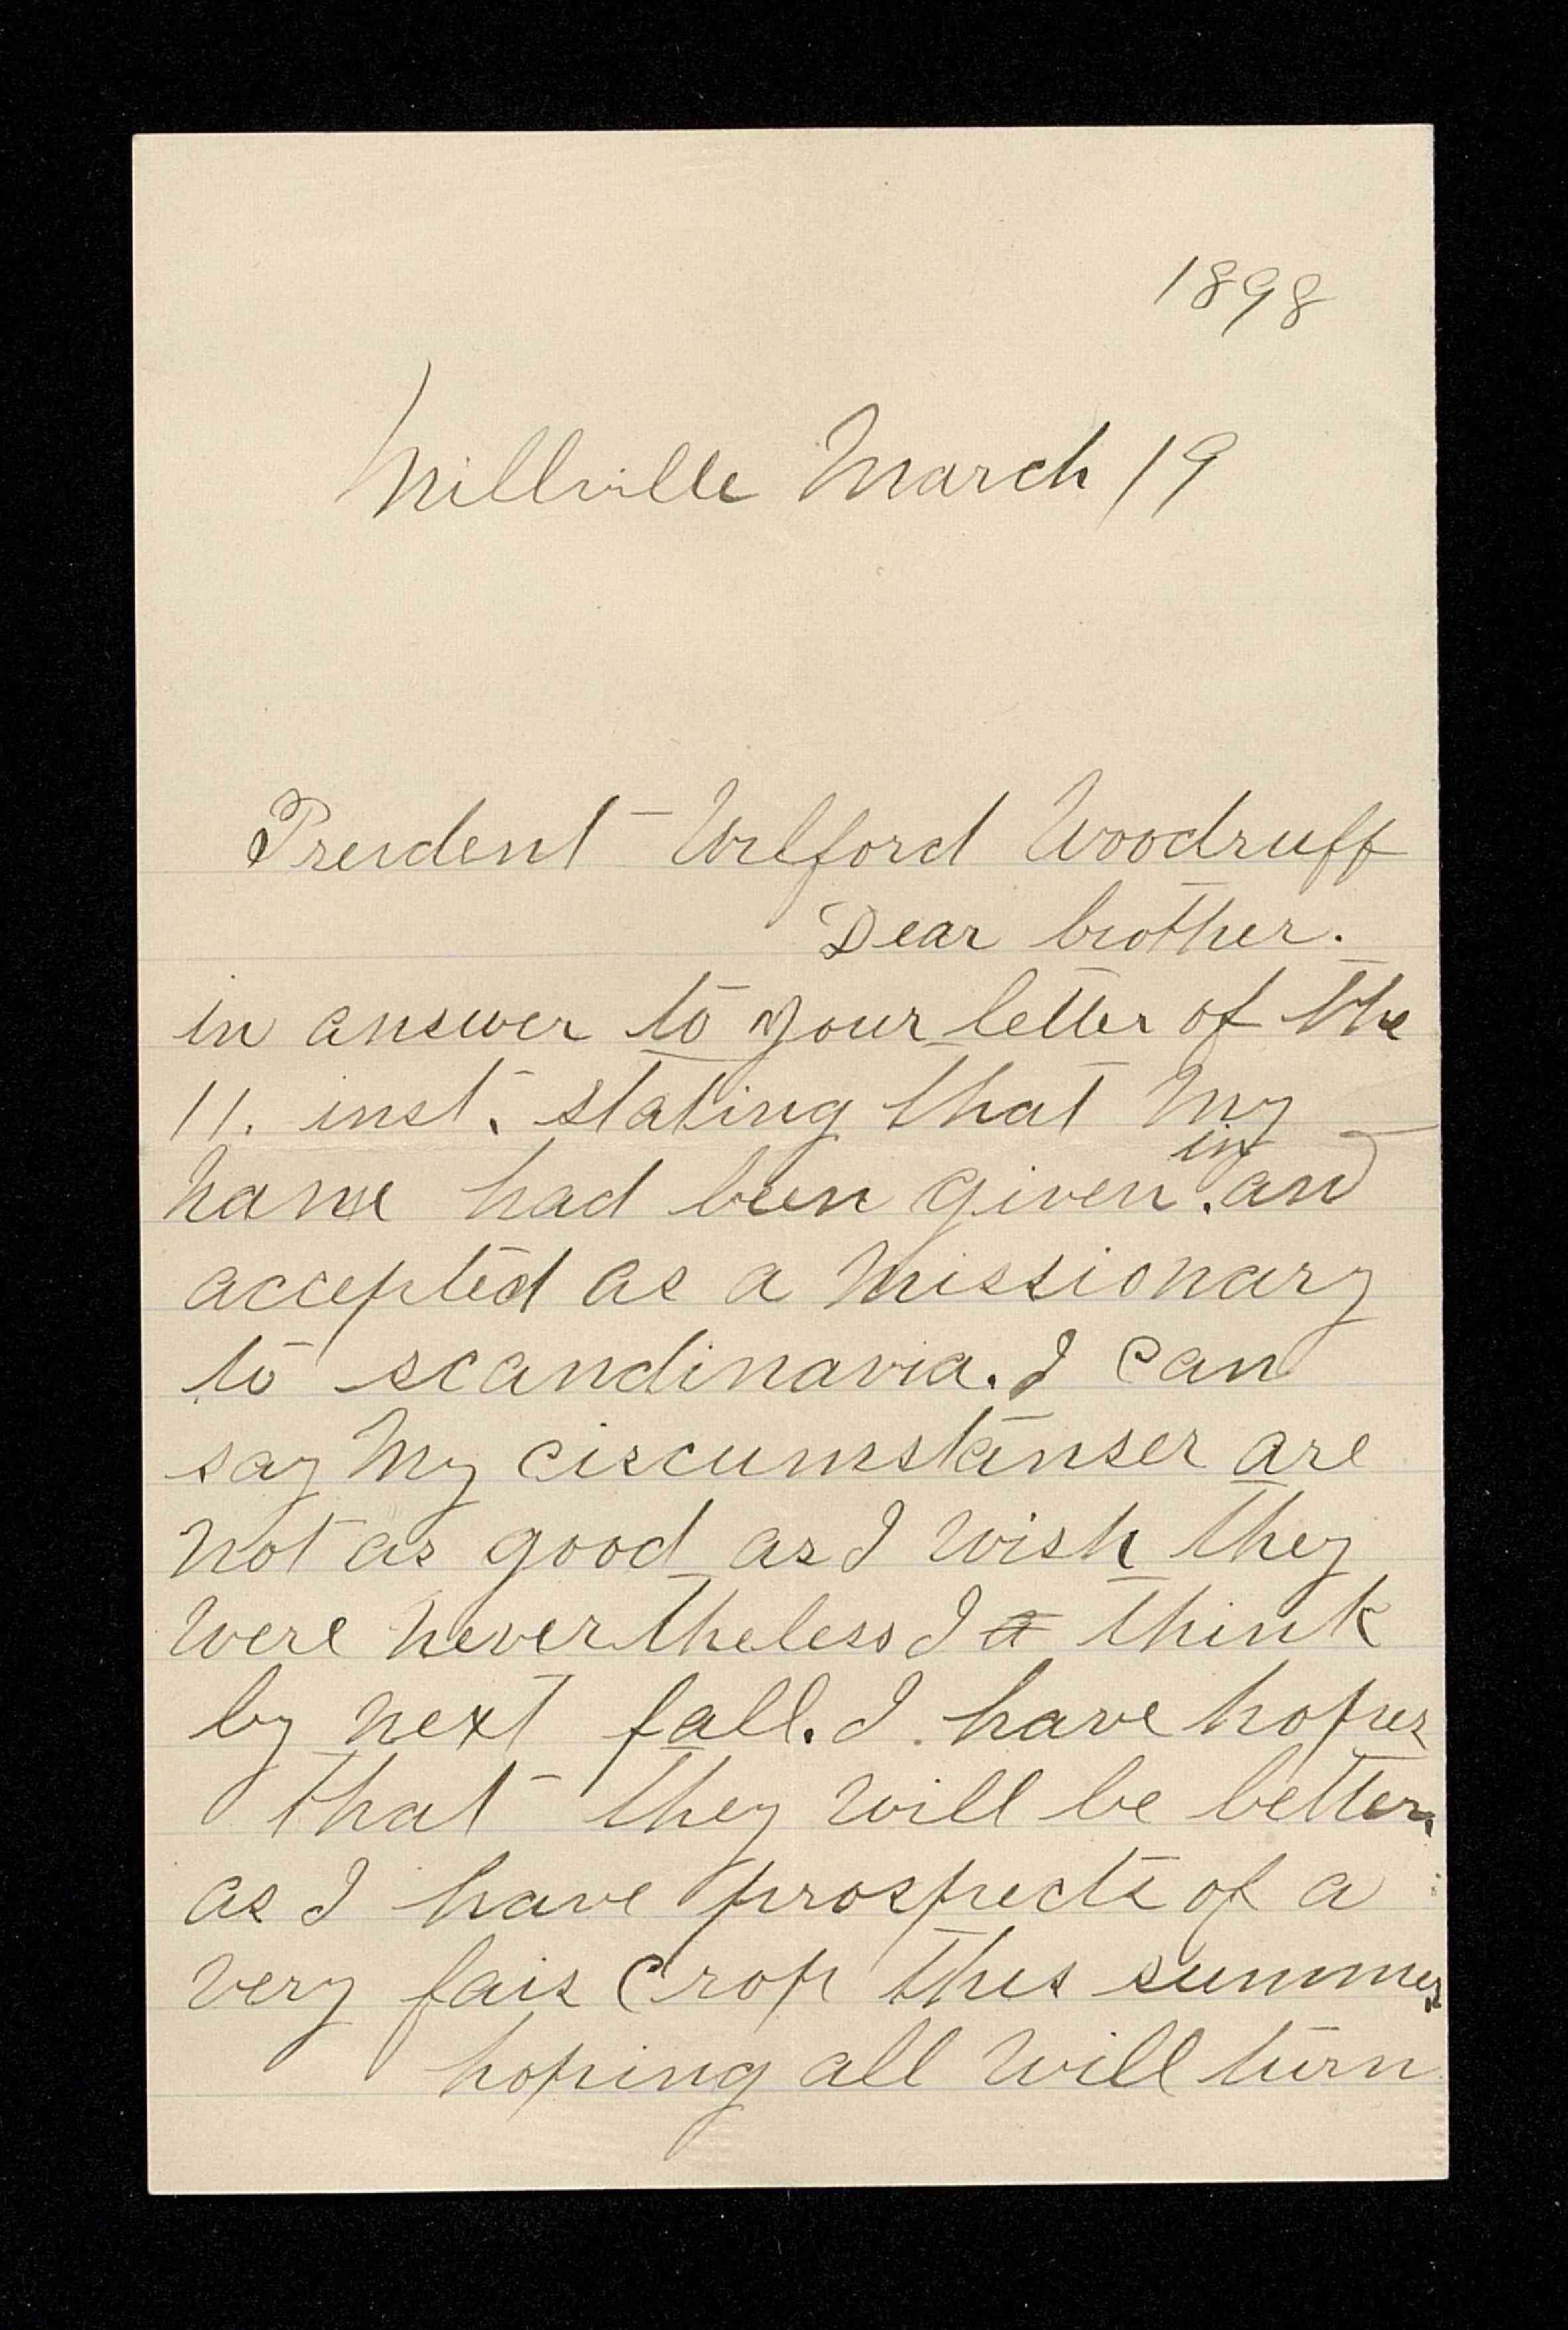 1898
Millville March 19
Presdent Wilford Woodruff
Dear brother.
in answer to your letter of the
11. inst. stating that My
in
name had been given. and
accepted as a Missionary
to scandinavia. I can
say My circumstanser are
not as good as I wish they
were nevertheless I a think
by next fall. I have hopes
that they will be better.
as I have prospects of a
very fair Crop this summer.
hoping all will turn